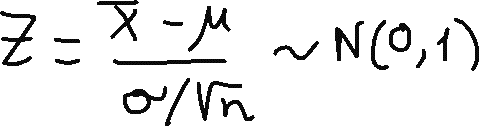 Z = (x̄ - μ) / (σ/√n) ~ N(0,1)